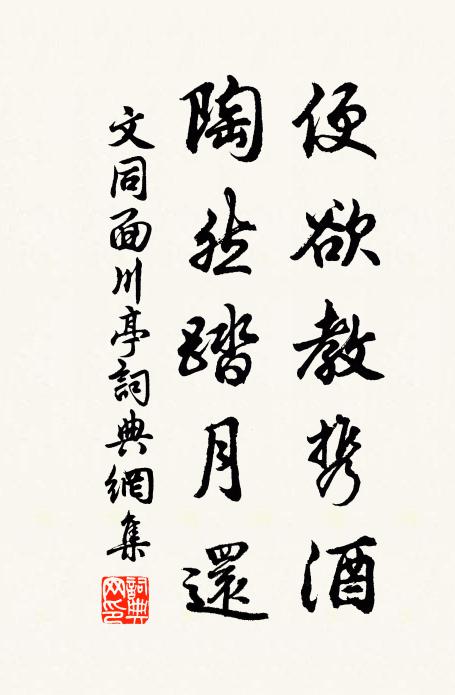 便欲教携酒
陶然踏月還
文同面川亭詞典網集
詞典网印